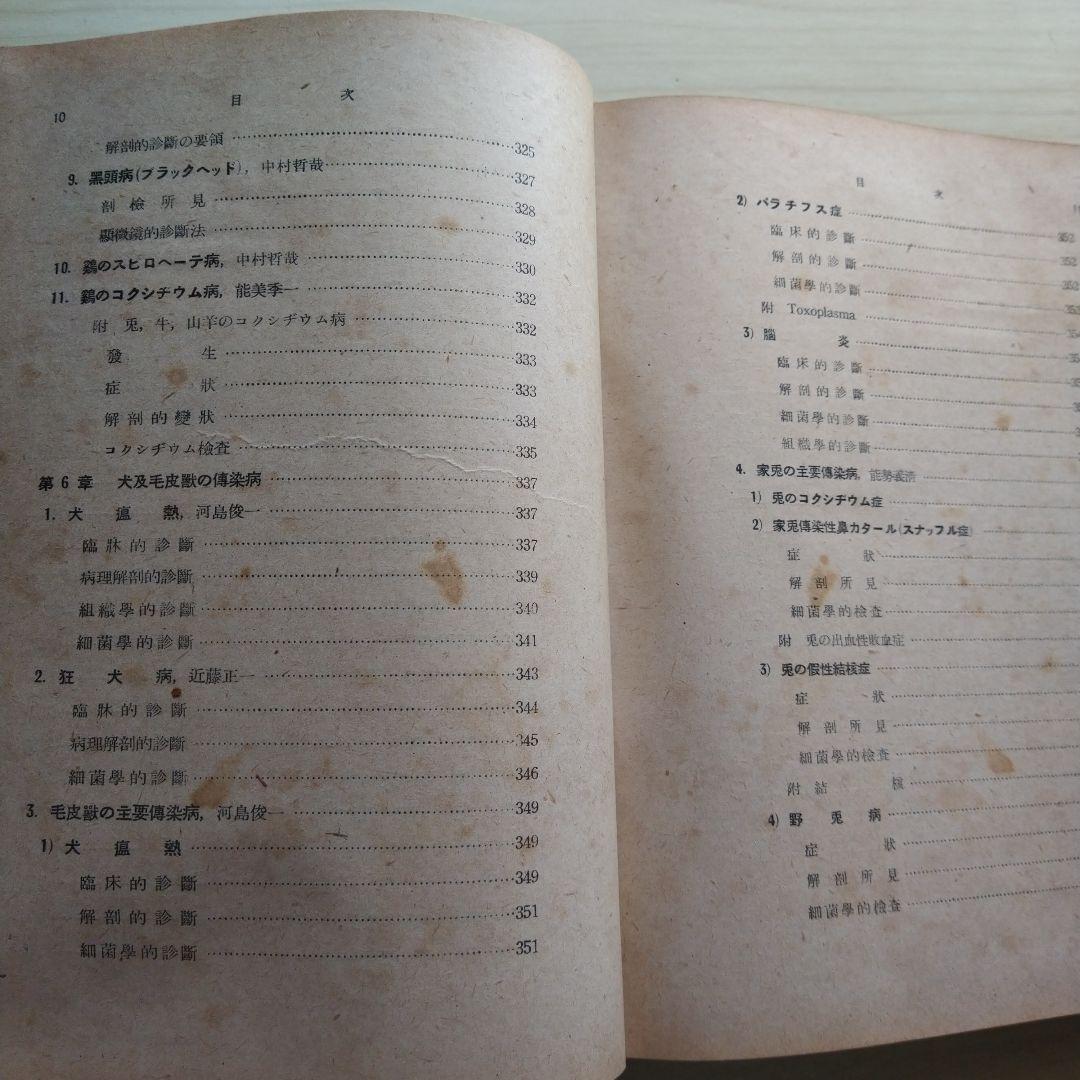 10
目次
解剖的診斷の要領 325
9. 黑頭病(ブラックヘッド), 中村哲哉 327
剖檢所見 328
顯微鏡的診斷法 329
10. 鷄のスピロヘーテ病, 中村哲哉 330
11. 鷄のコクシヂウム病, 能美季一 332
附 兎, 牛, 山羊のコクシヂウム病 332
發生 333
症狀 333
解剖的變狀 334
コクシヂウム檢査 335
第6章 犬及毛皮獸の傳染病 337
1. 犬瘟熱, 河島俊一 337
臨牀的診斷 337
病理解剖的診斷 339
組織學的診斷 340
細菌學的診斷 341
2. 狂犬病, 近藤正一 343
臨牀的診斷 344
病理解剖的診斷 345
細菌學的診斷 346
3. 毛皮獸の主要傳染病, 河島俊一 349
1) 犬瘟熱 349
臨床的診斷 349
解剖的診斷 351
細菌學的診斷 351
目次
2) パラチフス症 352
臨床的診斷 352
解剖的診斷 352
細菌學的診斷 352
附 Toxoplasma
3) 腦炎
臨床的診斷
解剖的診斷
細菌學的診斷
組織學的診斷
4. 家兎の主要傳染病, 能勢義清
1) 兎のコクシヂウム症
2) 家兎傳染性鼻カタール(スナッフル症)
症狀
解剖所見
細菌學的檢査
附 兎の出血性敗血症
3) 兎の假性結核症
症狀
解剖所見
細菌學的檢査
附 結核
4) 野兎病
症狀
解剖所見
細菌學的檢査